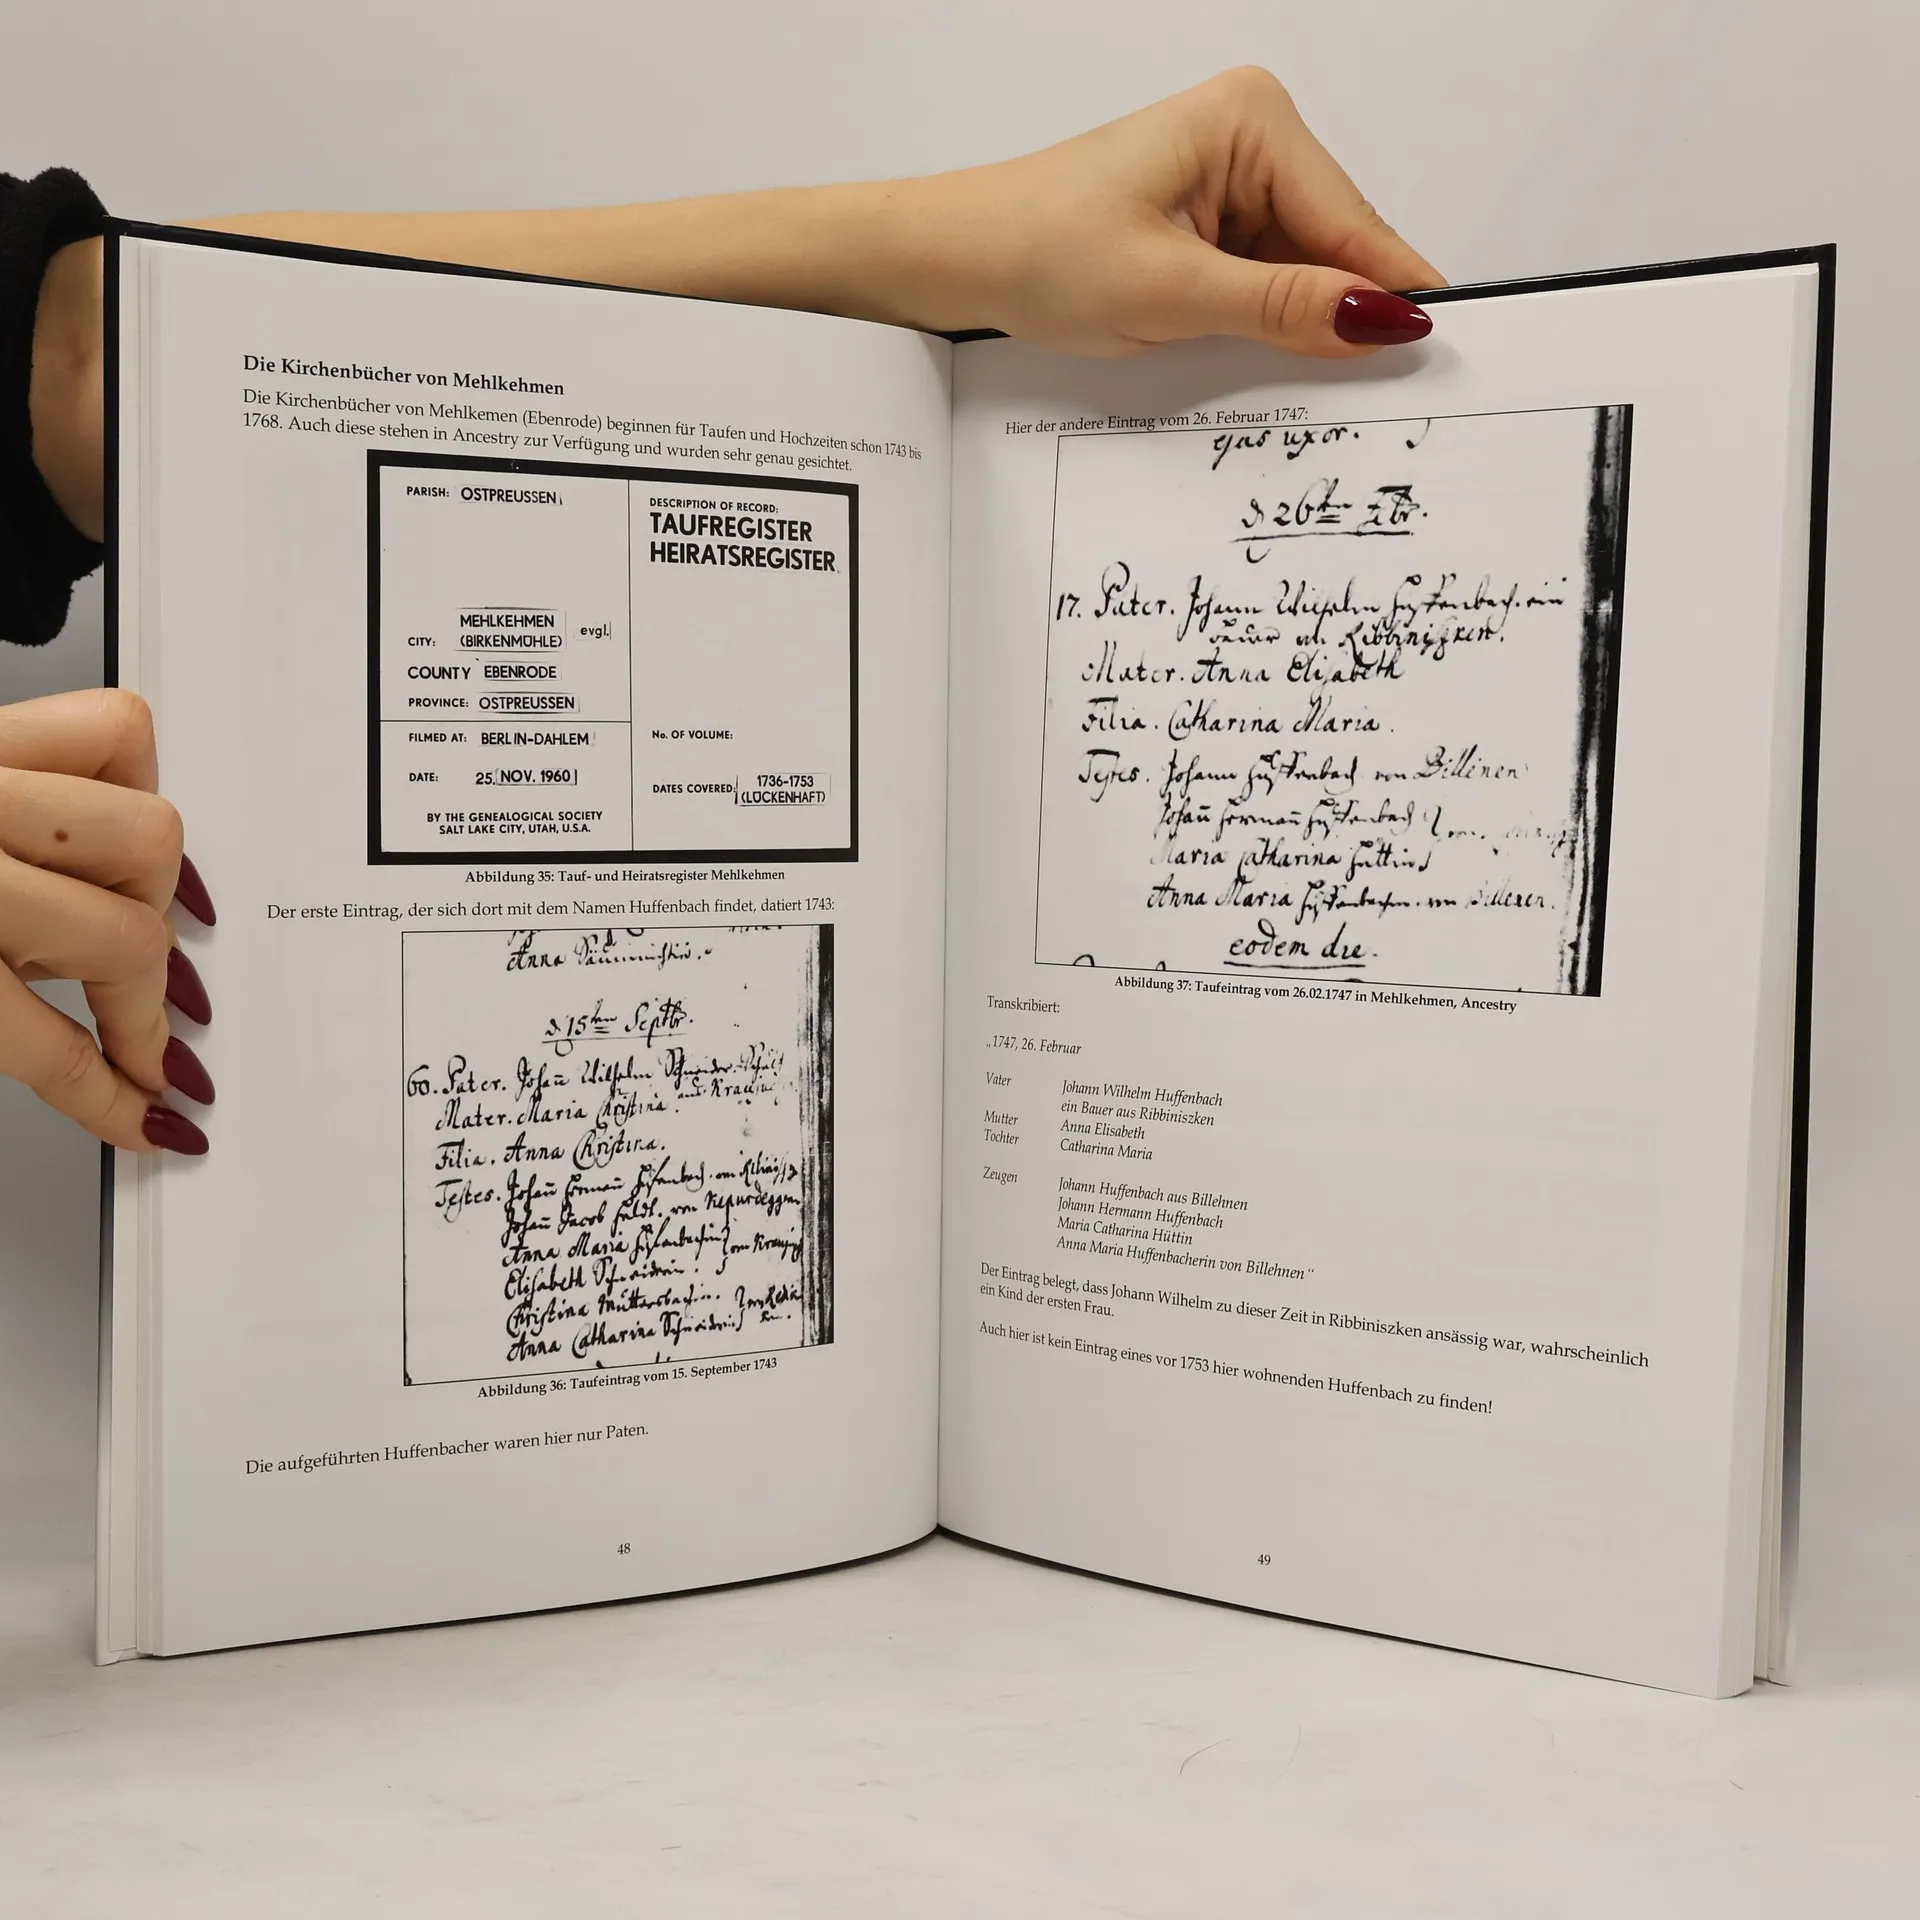 Die Kirchenbücher von Mehlkehmen
Die Kirchenbücher von Mehlkemen (Ebenrode) beginnen für Taufen und Hochzeiten schon 1743 bis
1768. Auch diese stehen in Ancestry zur Verfügung und wurden sehr genau gesichtet.
PARISH: OSTPREUSSEN
CITY: MEHLKEHMEN
(BIRKENMÜHLE) evgl.
COUNTY EBENRODE
PROVINCE: OSTPREUSSEN
FILMED AT: BERLIN-DAHLEM
DATE: 25. NOV. 1960
BY THE GENEALOGICAL SOCIETY
SALT LAKE CITY, UTAH, U.S.A.
DESCRIPTION OF RECORD:
TAUFREGISTER
HEIRATSREGISTER
No. OF VOLUME:
DATES COVERED: 1736-1753
(LÜCKENHAFT)
Abbildung 35: Tauf- und Heiratsregister Mehlkehmen
Der erste Eintrag, der sich dort mit dem Namen Huffenbach findet, datiert 1743:
Anna
d 15ten Septbr.
60. Pater. Johann Wilhelm Schneider
Mater. Maria Christina
Filia. Anna Christina.
Testes. Johann Herman Huffenbach
Johann Jacob
Anna Maria Huffenbachin
Elisabeth Schneiderin.
Christina
Anna Catharina Schneiderin
Abbildung 36: Taufeintrag vom 15. September 1743
Die aufgeführten Huffenbacher waren hier nur Paten.
48
Hier der andere Eintrag vom 26. Februar 1747:
ejus uxor.
d 26ten Febr.
17. Pater. Johann Wilhelm Huffenbach. ein
Bauer Ribbinißken.
Mater. Anna Elisabeth
Filia. Catharina Maria.
Testes. Johann Huffenbach von Billenen
Johann Herman Huffenbach
Maria Catharina Hüttin
Anna Maria Huffenbachin. von Billenen.
eodem die.
Abbildung 37: Taufeintrag vom 26.02.1747 in Mehlkehmen, Ancestry
Transkribiert:
„1747, 26. Februar
Vater Johann Wilhelm Huffenbach
ein Bauer aus Ribbiniszken
Mutter Anna Elisabeth
Tochter Catharina Maria
Zeugen Johann Huffenbach aus Billehnen
Johann Hermann Huffenbach
Maria Catharina Hüttin
Anna Maria Huffenbacherin von Billehnen“
Der Eintrag belegt, dass Johann Wilhelm zu dieser Zeit in Ribbiniszken ansässig war, wahrscheinlich
ein Kind der ersten Frau.
Auch hier ist kein Eintrag eines vor 1753 hier wohnenden Huffenbach zu finden!
49